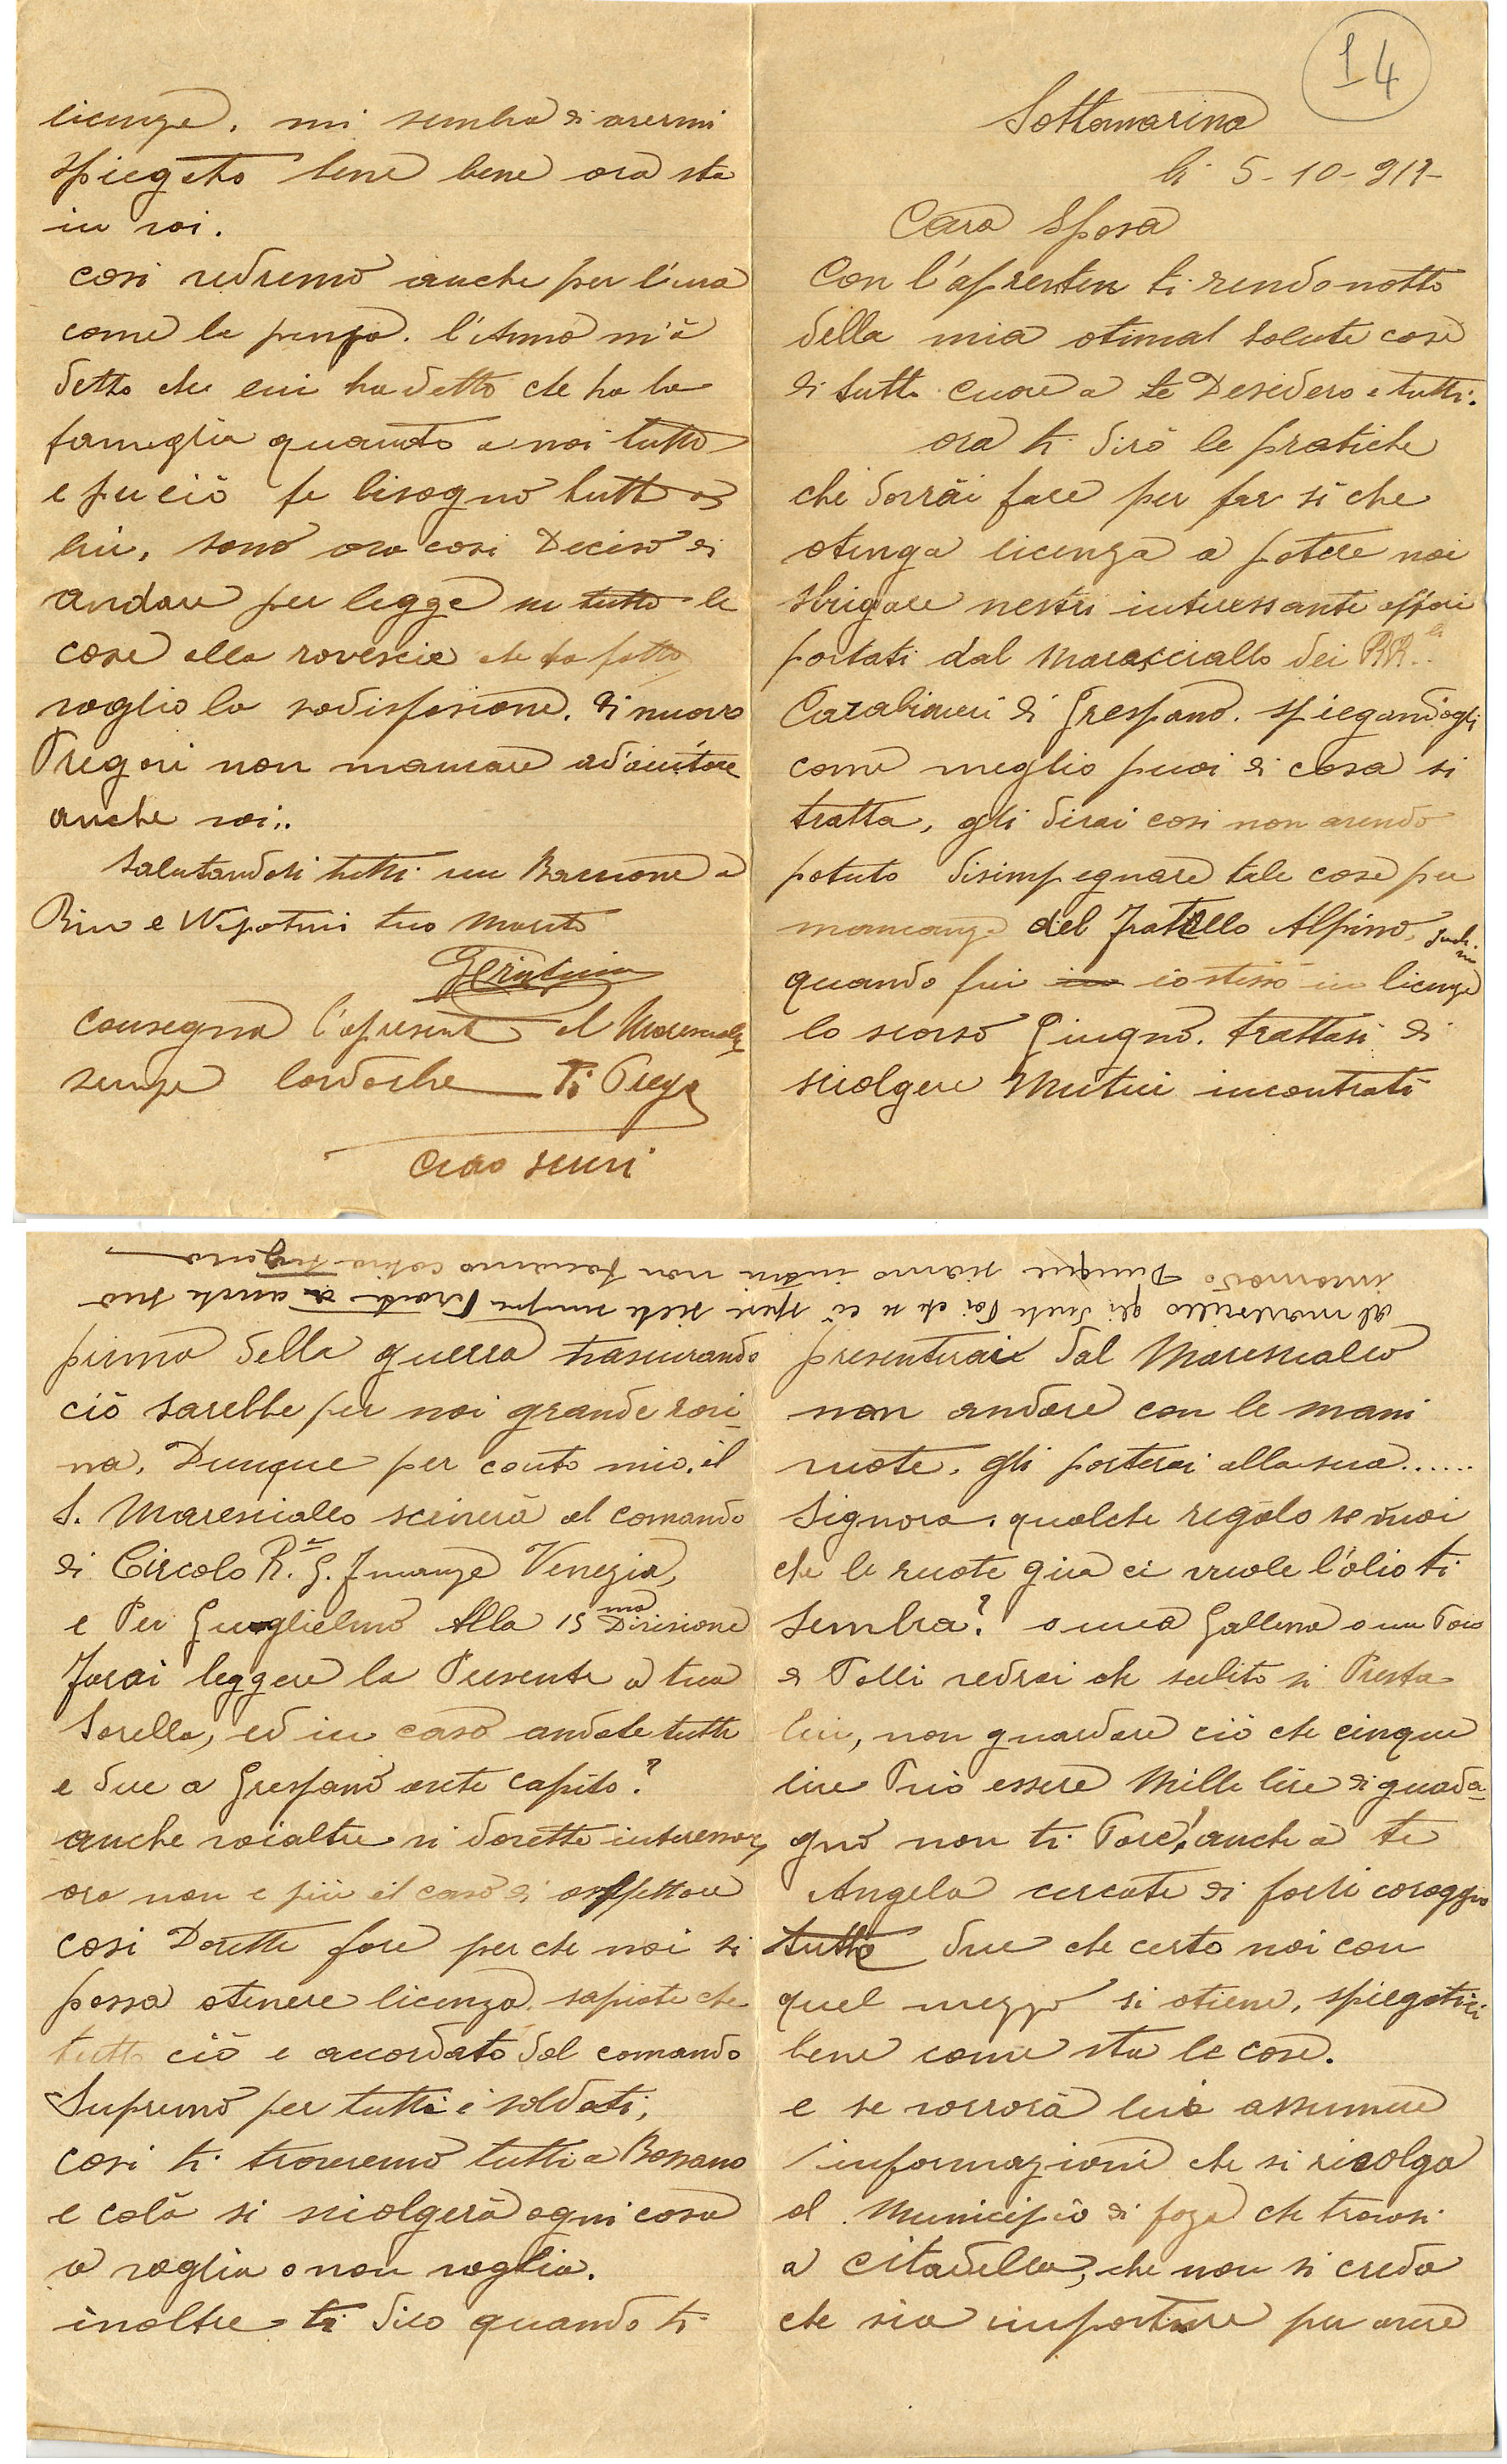 14
Sottomarina
li 5-10-917-
Cara Sposa
Con l'apresten ti rendo notto
della mia otimal salute così
di tutto cuore a te Desidero e tutti.
ora ti dirò le pratiche
che dorrai fare per far si che
otenga licenza a potere noi
sbrigare nestri interessante affari
portati dal Marasciallo dei RR.
Carabinieri di Crespano. spiegandogli
come meglio puoi di cosa si
tratta, gli dirai cosi non avendo
potuto disimpegnare tale cose per
mancanza del Fratello Alpino,
quando fui io stesso in licenza
lo scorso Giugno. trattasi di
sciolgere Mutui incontrati
prima della guerra trascurando
ciò sarebbe per noi grande rovi-
na, Dunque per conto mio. il
S. Maresciallo scriverà al comando
di Circolo R.e G. Finanza Venezia,
e Per Guglielmo Alla 15ma Divisione
Farai leggere la Presente a tua
Sorella, ed in caso andate tutte
e due a Crespano avete capito?
anche voialtre vi dovette interessare
ora non e più il caso di aspettare
cosi Dovette fare per che noi si
possa otenere licenza. sapiate che
tutto ciò e accordato dal comando
Supremo per tutti i soldati,
cosi ti troveremo tutti a Bassano
e colà si sciolgerà ogni cosa
o voglia o non voglia.
inoltre ti dico quando ti
presenterai dal Maresciallo
non andare con le mani
vuote, gli porterai alla sua......
Signora. qualche regalo se vuoi
che le ruote gira ci vuole l'olio ti
sembra? o una Gallina o un Paio
di Polli vedrai che subito si Presta
lui, non guardare ciò che cinque
lire Può essere Mille lire di guada-
gno non ti Pare! anche a te
Angela cercate di farti coraggio
tutte due che certo noi con
quel mezzo si otiene, spiegatevi
bene come sta le cose.
e se vorrorà lui assumere
informazioni che si rivolga
al Municipio di foza che trovasi
a Citadella, che non si creda
che sia imposture per avere
licenza. mi sembra di avermi
spiegato bene bene ora sta
in voi.
cosi vedremo anche per l'uva
come la pensa. l'Anno m'à
detto che lui ha detto che ha la
fameglia quanto a noi tutto
e per ciò fe bisogno tutto a
lui, sono ora cosi Deciso di
andare per legge su tutto le
cose alla rovescie che ha fatto
voglio la sodisfasione. di nuovo
Pregovi non mancare ad'aiutare
anche voi..
Salutandoti tutti un Baccione a
Rino e Nipotini tuo Marito
consegna l'apresente al Maresciallo
senza Ti Prego
Ciao scrivi
al maresciallo gli
incomodo Dunque siamo intesi non facciamo